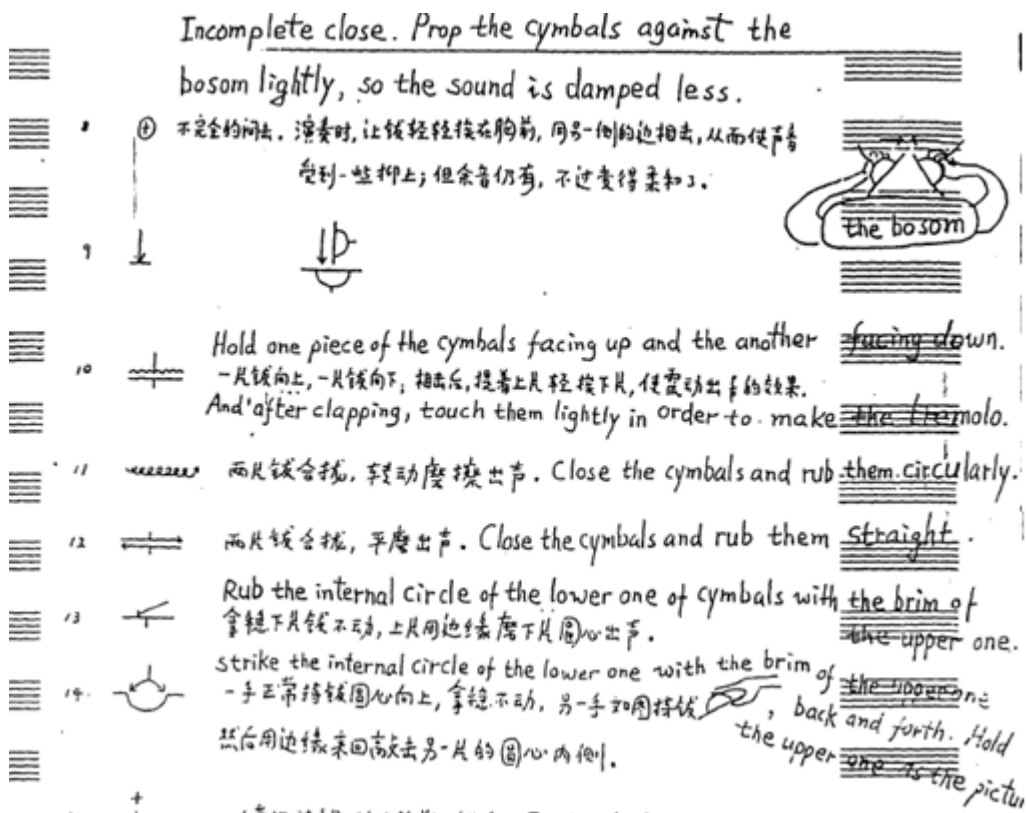 Incomplete close. Prop the cymbals against the
bosom lightly, so the sound is damped less.
8 不完全的闷击. 演奏时, 让钹轻轻挨在胸前, 用另一侧的边相击, 从而使声音
受到一些抑止; 但余音仍有, 不过变得柔和了.
the bosom
9
Hold one piece of the cymbals facing up and the another facing down.
10 一片钹向上, 一片钹向下; 相击后, 提着上片轻挨下片, 使震动出的效果.
And after clapping, touch them lightly in order to make the tremolo.
11 两片钹合拢, 转动磨擦出声. Close the cymbals and rub them circularly.
12 两片钹合拢, 平磨出声. Close the cymbals and rub them straight.
Rub the internal circle of the lower one of cymbals with the brim of
the upper one.
13 拿稳下片钹不动, 上片用边缘磨下片圆心出声.
strike the internal circle of the lower one with the brim of the upper one
, back and forth. Hold
the upper one as the pictu
14. 一手正常持钹圆心向上, 拿稳不动, 另一手如图持钹
然后用边缘来回敲击另一片的圆心内侧.